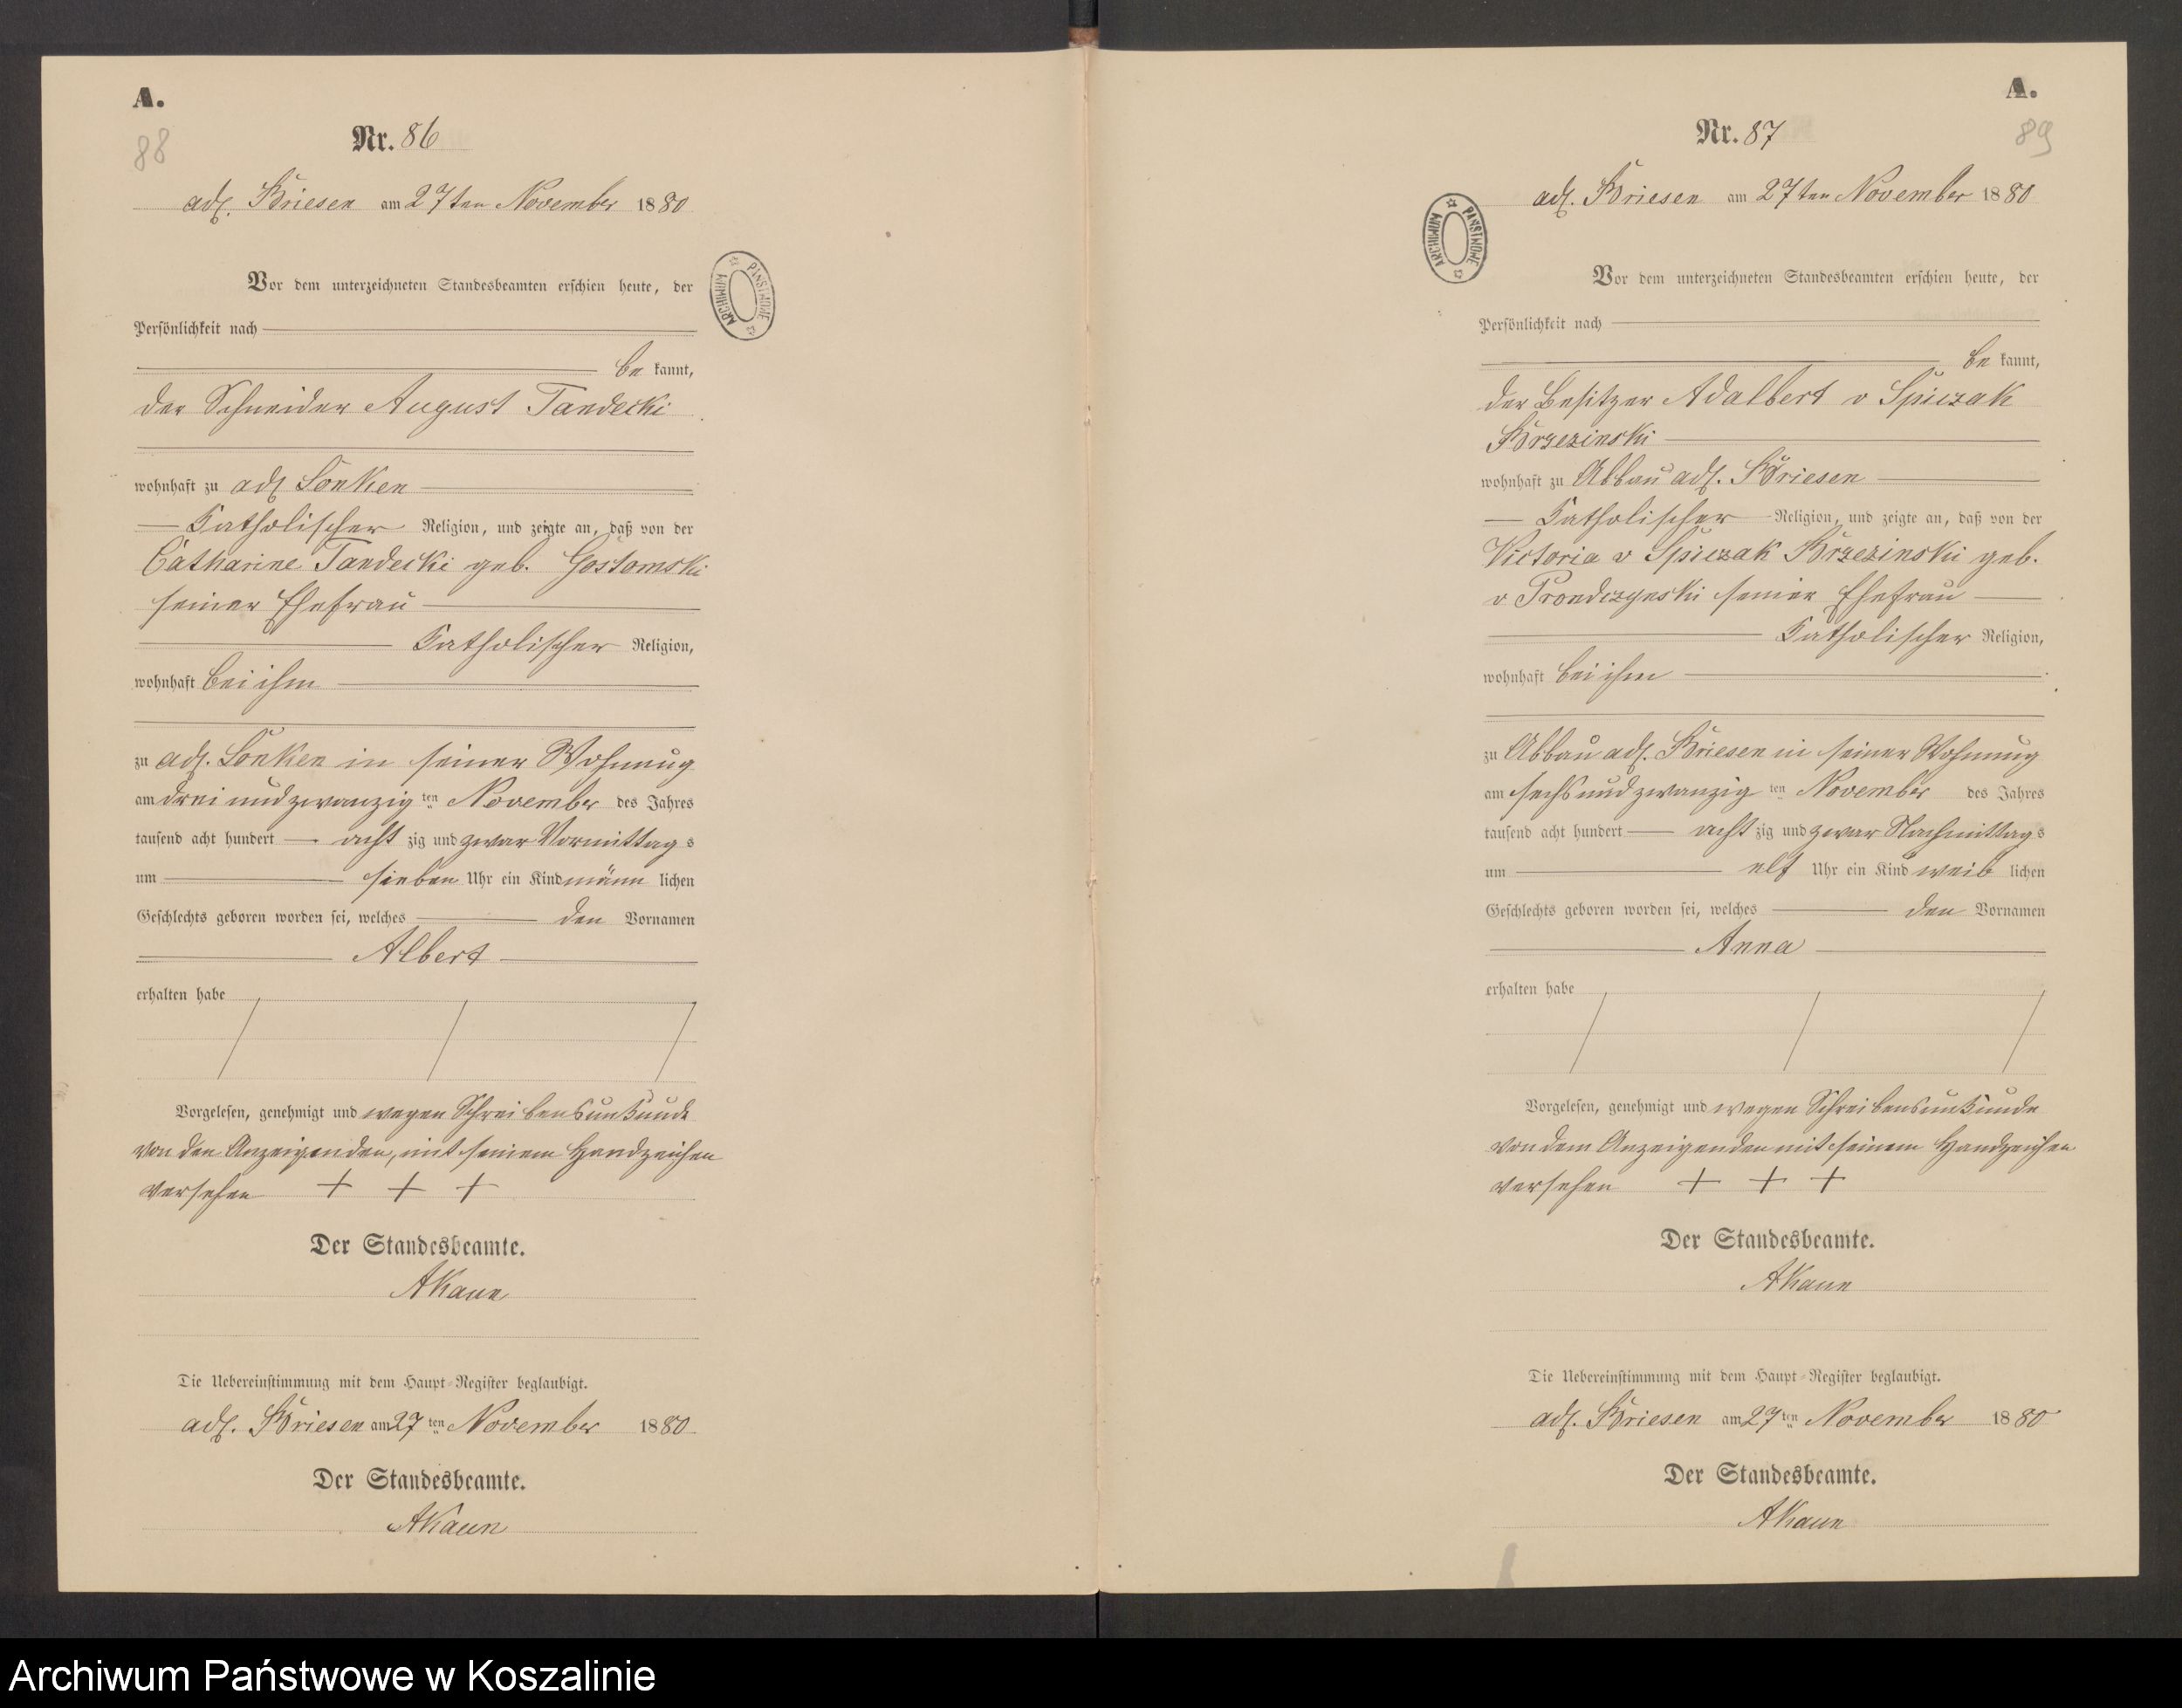 A.
88
Nr. 86
adl. Briesen am 27ten November 1880
Vor dem unterzeichneten Standesbeamten erschien heute, der
Persönlichkeit nach
bekannt,
der Schneider August Tandecki
wohnhaft zu adl Lonken
Katholischer Religion, und zeigte an, daß von der
Catharine Tandecki geb. Gostomski
seiner Ehefrau
Katholischer Religion,
wohnhaft bei ihm
zu adl. Lonken in seiner Wohnung
am drei und zwanzigten November des Jahres
tausend acht hundert achtzig und zwar Vormittags
um sieben Uhr ein Kind männlichen
Geschlechts geboren worden sei, welches den Vornamen
Albert
erhalten habe
Vorgelesen, genehmigt und wegen Schreibensunkunde
von den Anzeigenden, mit seinem Handzeichen
versehen + + +
Der Standesbeamte.
AKaun
Die Uebereinstimmung mit dem Haupt-Register beglaubigt.
adl. Briesen am 27ten November 1880.
Der Standesbeamte.
AKaun
ARCHIWUM PAŃSTWOWE
A.
89
Nr. 87
adl. Briesen am 27ten November 1880
ARCHIWUM PAŃSTWOWE
Vor dem unterzeichneten Standesbeamten erschien heute, der
Persönlichkeit nach
bekannt,
der Besitzer Adalbert v Spiczak
Brzezinski
wohnhaft zu Abbau adl. Briesen
Katholischer Religion, und zeigte an, daß von der
Victoria v Spiczak Brzezinski geb.
v Prondzynski seiner Ehefrau
Katholischer Religion,
wohnhaft bei ihm
zu Abbau adl. Briesen in seiner Wohnung
am sechs und zwanzigten November des Jahres
tausend acht hundert achtzig und zwar Nachmittags
um elf Uhr ein Kind weiblichen
Geschlechts geboren worden sei, welches den Vornamen
Anna
erhalten habe
Vorgelesen, genehmigt und wegen Schreibensunkunde
von dem Anzeigenden mit seinem Handzeichen
versehen + + +
Der Standesbeamte.
AKaun
Die Uebereinstimmung mit dem Haupt-Register beglaubigt.
adl. Briesen am 27ten November 1880
Der Standesbeamte.
AKaun
Archiwum Państwowe w Koszalinie